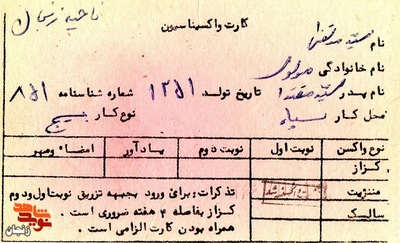 ناحیه زنجان
کارت واکسیناسیون
نام سید مرتضی
نام خانوادگی موسوی
نام پدر سید مقتدا تاریخ تولد ۱۳۵۱ شماره شناسنامه ۸۵۱
محل کار سپاه نوع کار بسیج
نوع واکسن نوبت اول نوبت دوم یادآور امضاء ومهر
کزاز
مننژیت واکسینه شد
سالک
تذکرات: برای ورود بجبهه تزریق نوبت اول و دوم
کزاز بفاصله ۴ هفته ضروری است .
همراه بودن کارت الزامی است .
نوید شاهد
زنجان